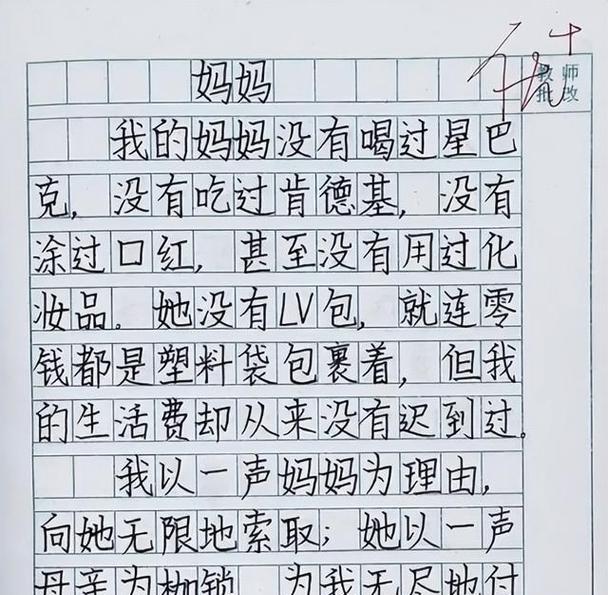 妈妈
优+
教师
批改
我的妈妈没有喝过星巴
克，没有吃过肯德基，没有
涂过口红，甚至没有用过化
妆品。她没有LV包，就连零
钱都是塑料袋包裹着，但我
的生活费却从来没有迟到过。
我以一声妈妈为理由，
向她无限地索取；她以一声
母亲为枷锁，为我无尽地付